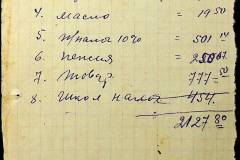 4. масло = 19 50
5. = 501 14
6. пенсия =
7. товар 777 = 50
8. школ налог 454.
2127 80